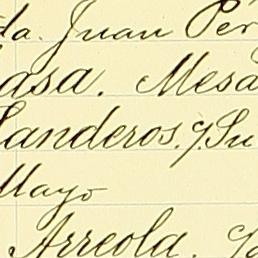 da. Juan Pér
asa. Mesa
Landeros. y Su
Mayo
Arreola.